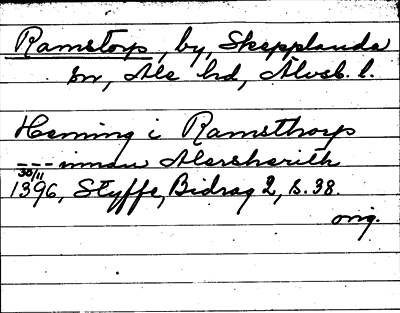 Ramstorp, by, Skepplanda
sn, Ale hd, Älvsb. l.
Hemming i Ramsthorp
--- innan Alershærith
30/11
1396, Styffe, Bidrag 2, s. 38.
orig.